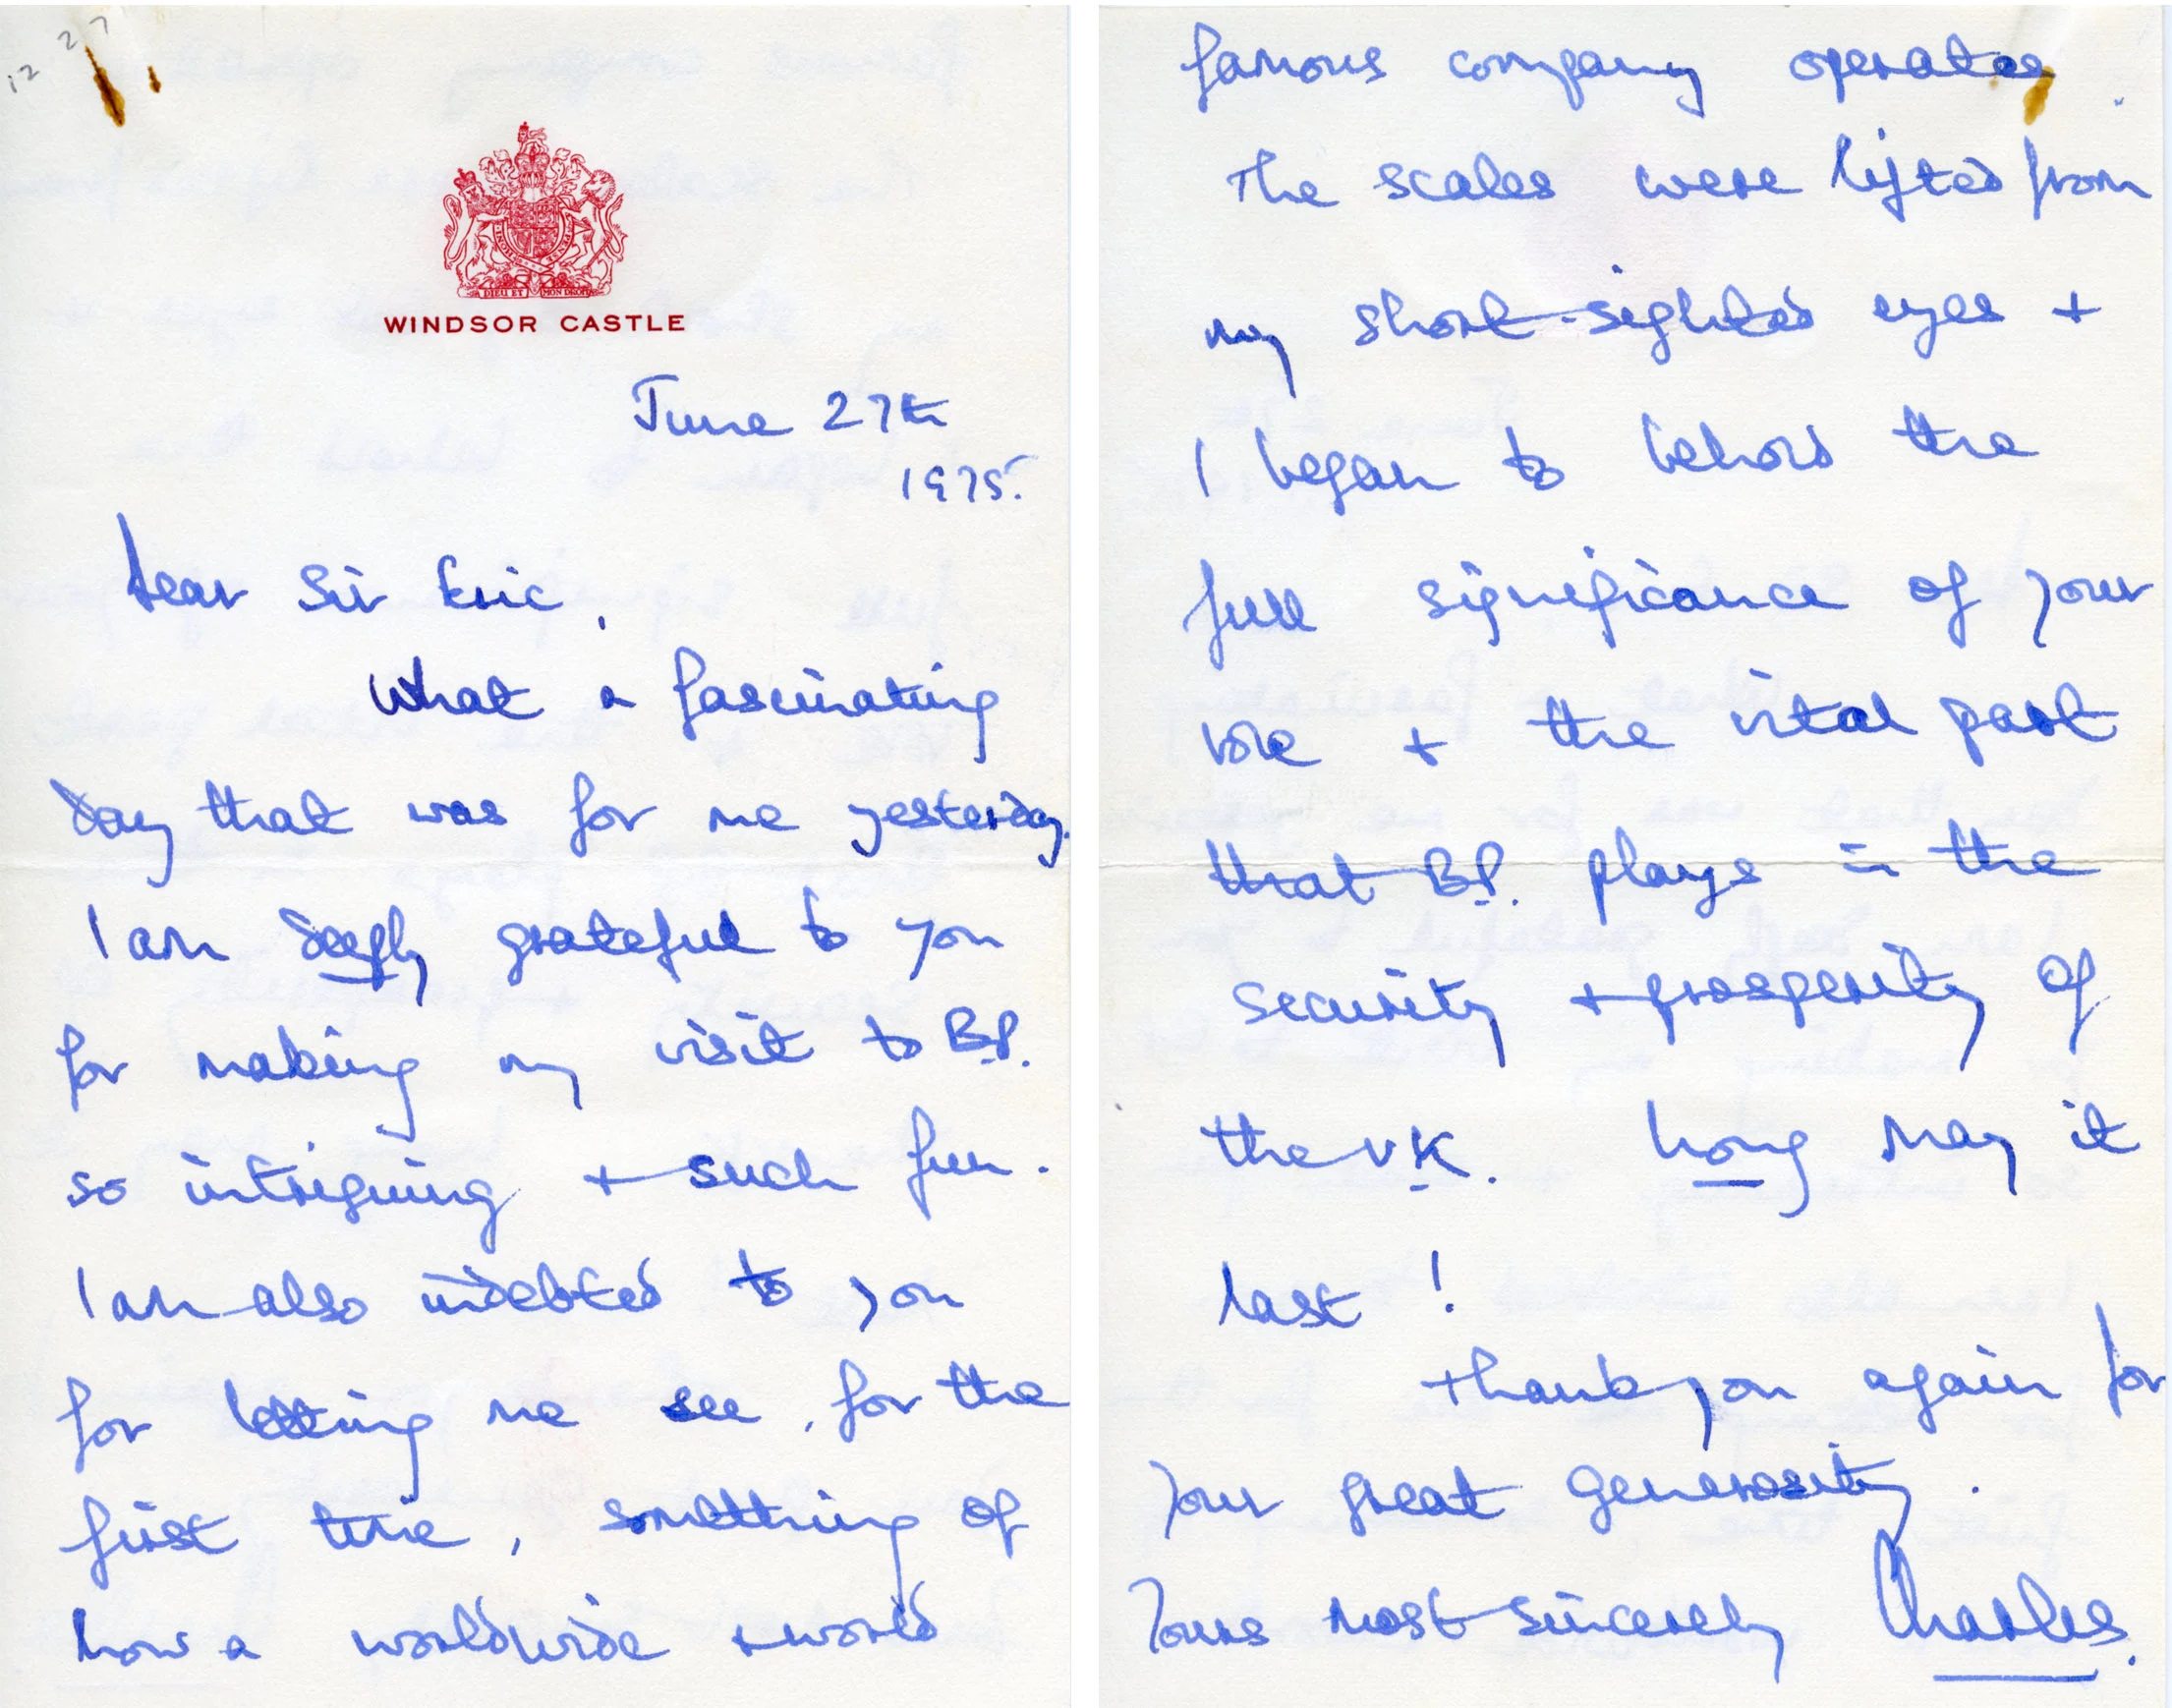 27
12
DIEU ET MON DROIT
WINDSOR CASTLE
June 27th
1975.
Dear Sir Eric,
What a fascinating
day that was for me yesterday.
I am deeply grateful to you
for making my visit to B.P.
so intriguing + such fun.
I am also indebted to you
for letting me see, for the
first time, something of
how a worldwide + world
famous company operates.
The scales were lifted from
my short-sighted eyes +
I began to behold the
full significance of your
role + the vital part
that B.P. plays in the
security + prosperity of
the U.K. Long may it
last!
Thank you again for
your great generosity.
Yours most sincerely Charles.